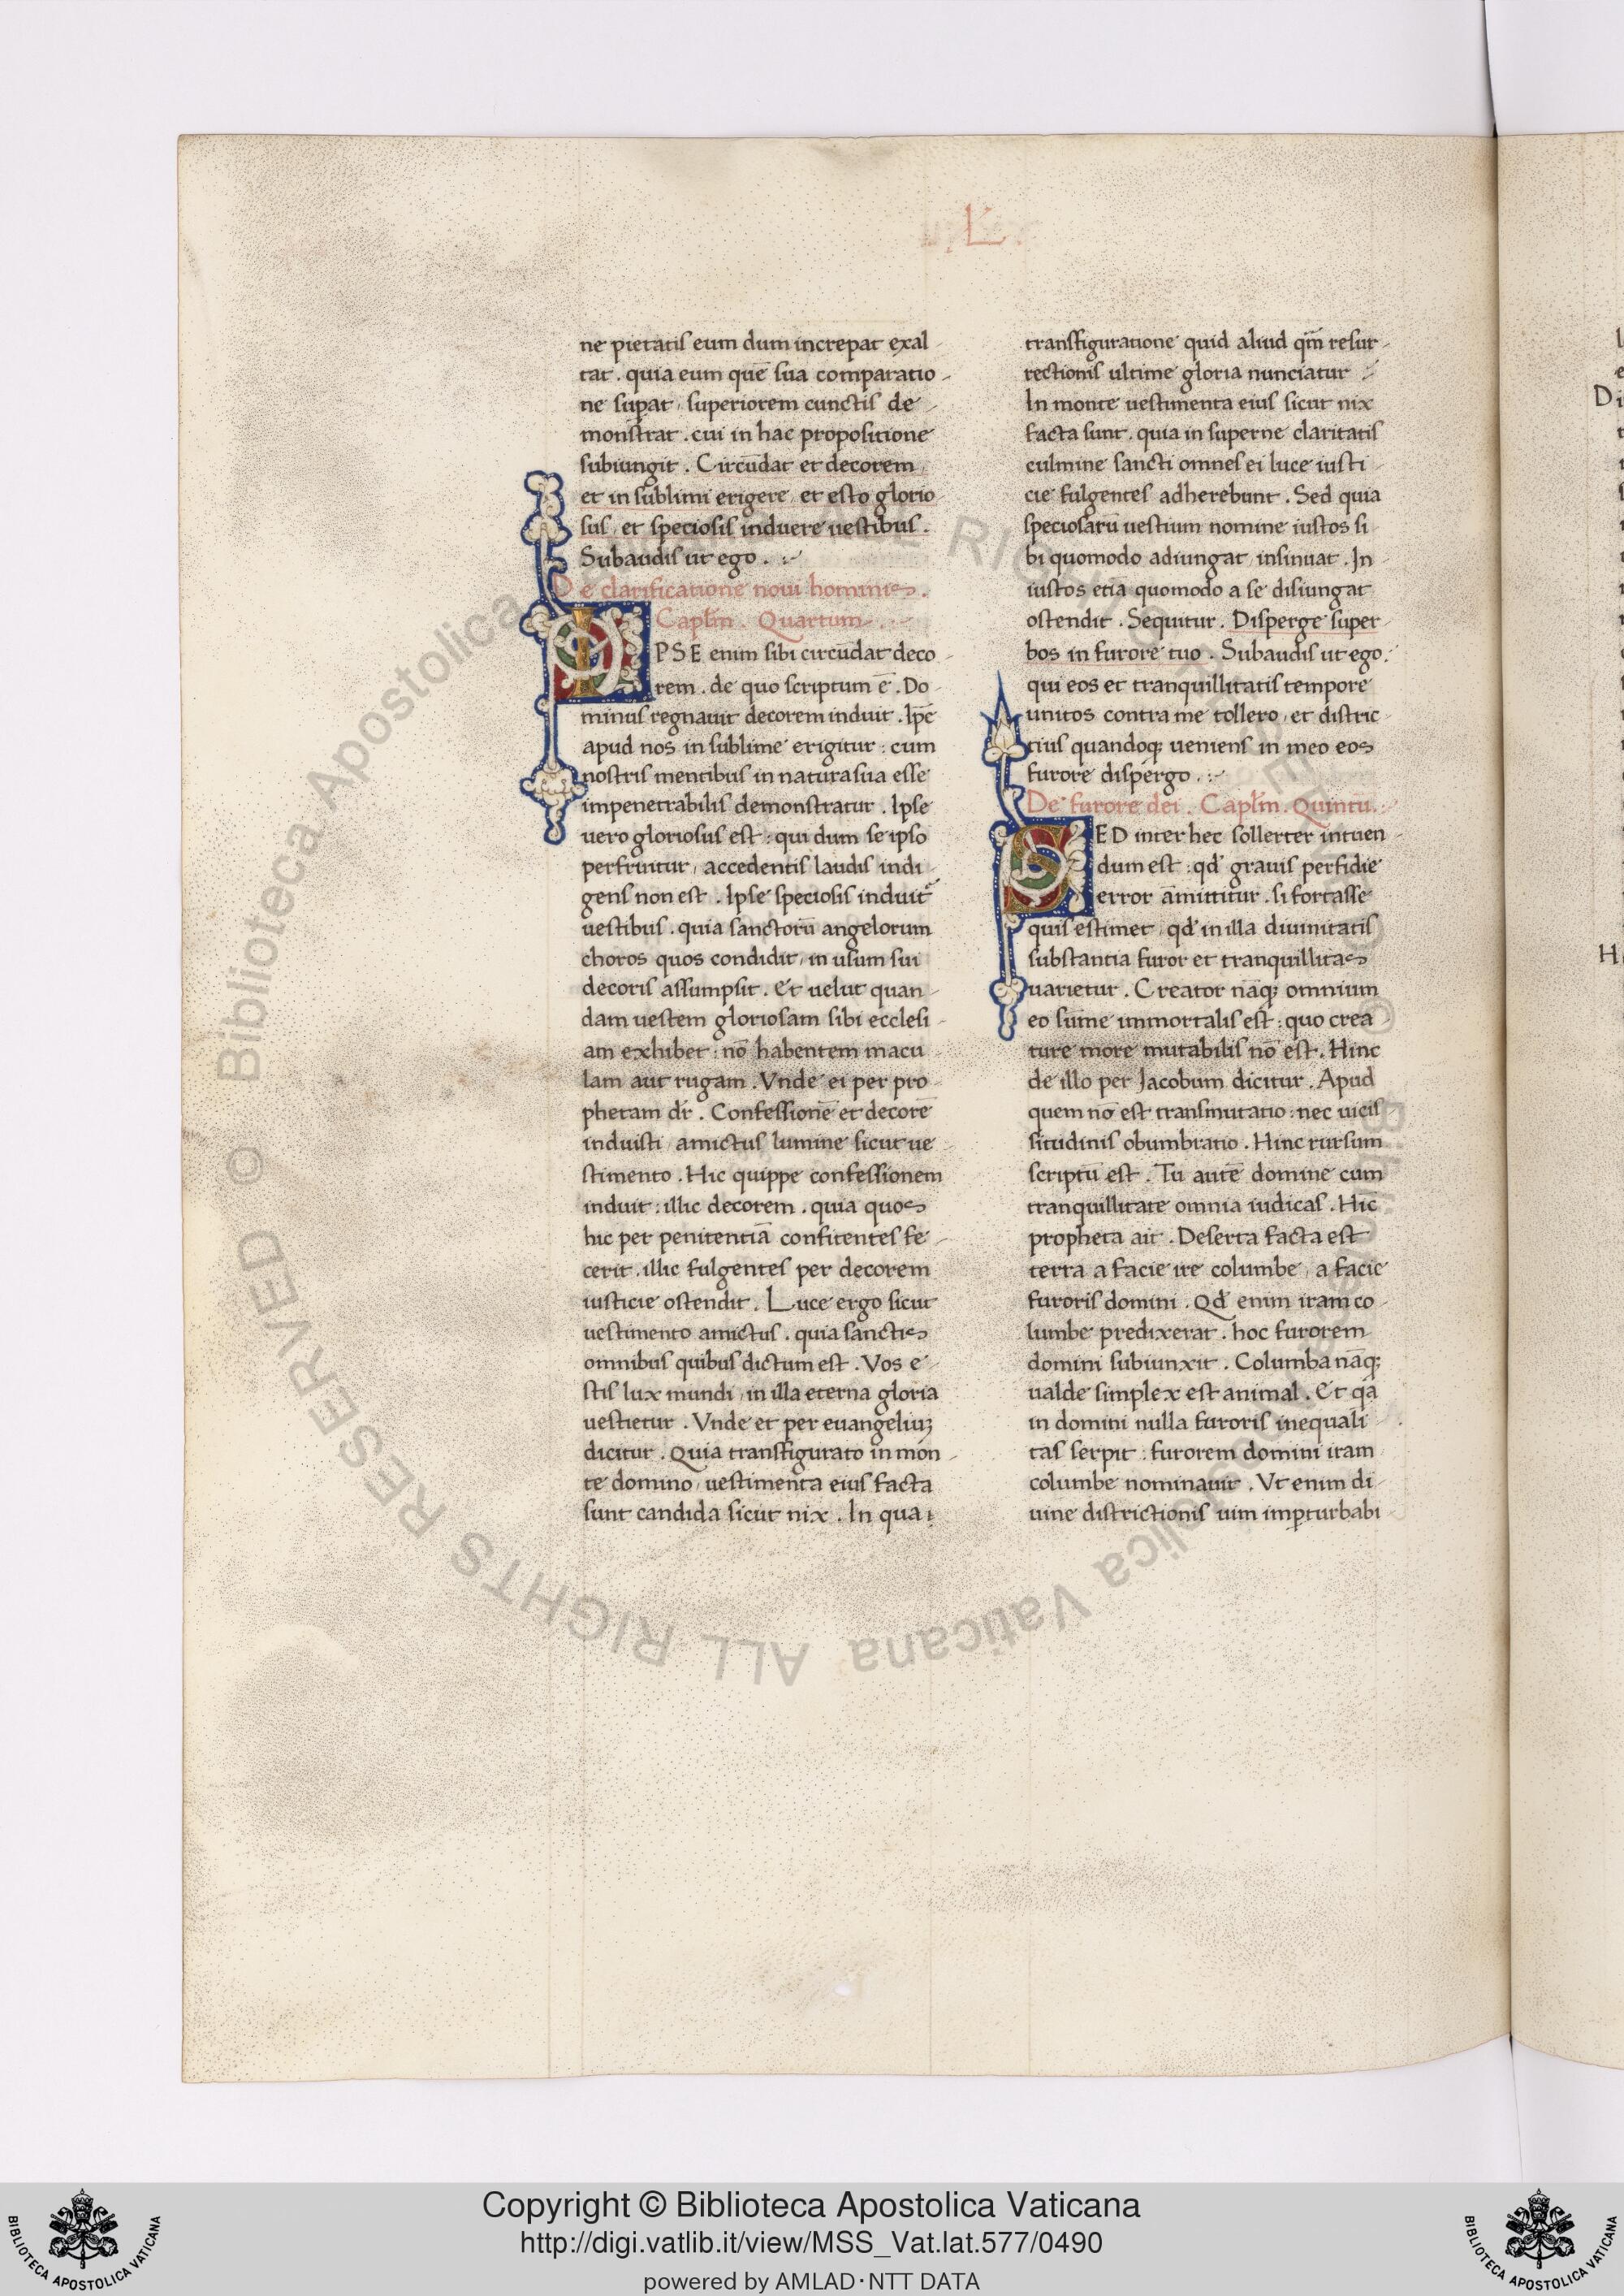 L
ne pietatis eum dum increpat exal-
tat. quia eum quē sua comparatio-
ne suꝑat, superiorem cunctis de-
monstrat. cui in hac propositione
subiungit. Circūdat et decorem,
et in sublimi erigere, et esto glorio-
sus, et speciosis induere uestibus.
Subaudis ut ego. :-
De clarificatione noui hominis.
Capl̄m. Quartum.
IPSE enim sibi circūdat deco-
rem. de quo scriptum ē. Do-
minus regnauit decorem induit. Ip̄e
apud nos in sublime erigitur: cum
nostris mentibus in natura sua esse
impenetrabilis demonstratur. Ipse
uero gloriosus est: qui dum se ipso
perfruitur, accedentis laudis indi-
gens non est. Ipse speciosis induit̄
uestibus. quia sanctorū angelorum
choros quos condidit, in usum sui
decoris assumpsit. Et uelut quan-
dam uestem gloriosam sibi ecclesi-
am exhibet: nō habentem macu-
lam aut rugam. Vnde ei per pro-
phetam dr̄. Confessionē et decorē
induisti, amictus lumine sicut ue-
stimento. Hic quippe confessionem
induit: illic decorem. quia quos
hic per penitentiā confitentes fe-
cerit. illic fulgentes per decorem
iusticie ostendit. Luce ergo sicut
uestimento amictus. quia sanctis
omnibus quibus dictum est. Vos e-
stis lux mundi, in illa eterna gloria
uestietur. Vnde et per euangeliuꝫ
dicitur. Quia transfigurato in mon-
te domino, uestimenta eius facta
sunt candida sicut nix. In qua
transfiguratione quid aliud qm̄ resur-
rectionis ultime gloria nunciatur :-
In monte uestimenta eius sicut nix
facta sunt. quia in superne claritatis
culmine sancti omnes ei luce iusti-
cie fulgentes adherebunt. Sed quia
speciosarū uestium nomine iustos si-
bi quomodo adiungat, insinuat. In-
iustos etiā quomodo a se disiungat
ostendit. Sequitur. Disperge super-
bos in furore tuo. Subaudis ut ego.
qui eos et tranquillitatis tempore
unitos contra me tollero, et distric-
tius quandoqꝫ ueniens in meo eos
furore dispergo. :-
De furore dei. Capl̄m. Quintū. :-
SED inter hec sollerter intuen-
dum est: qd̄ grauis perfidie
error āmittitur. si fortasse
quis estimet, qd̄ in illa diuinitatis
substantia furor et tranquillitas
uarietur. Creator nāqꝫ omnium
eo sūme immortalis est: quo crea-
ture more mutabilis nō est. Hinc
de illo per Jacobum dicitur. Apud
quem nō est transmutatio: nec uicis-
situdinis obumbratio. Hinc rursum
scriptū est. Tu autē domine cum
tranquillitate omnia iudicas. Hīc
propheta ait. Deserta facta est
terra a facie ire columbe, a facie
furoris domini. Qd̄ enim iram co-
lumbe predixerat. hoc furorem
domini subiunxit. Columba nāqꝫ
ualde simplex est animal. Et qa
in domini nulla furoris inequali-
tas serpit: furorem domini iram
columbe nominauit. Vt enim di-
uine districtionis uim imꝑturbabi-
Copyright © Biblioteca Apostolica Vaticana
http://digi.vatlib.it/view/MSS_Vat.lat.577/0490
powered by AMLAD·NTT DATA
BIBLIOTECA APOSTOLICA VATICANA
BIBLIOTECA APOSTOLICA VATICANA